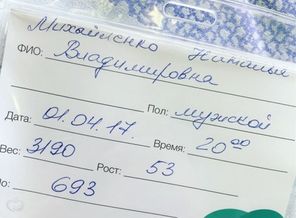 Михайленко Наталья
ФИО: Владимировна
Пол: мужской
Дата: 01.04.17. Время: 20⁰⁰
Вес: 3190 Рост: 53
№: 693